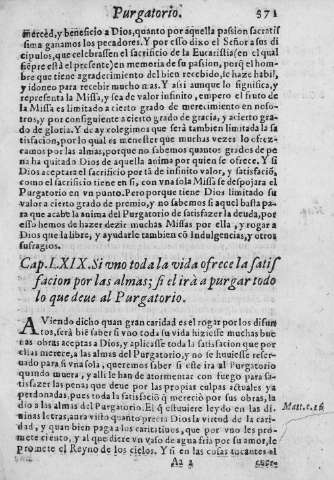 Purgatorio. 571
merced, y beneficio a Dios, quanto por aquella passion sacratis
sima ganamos los pecadores. Y por esso dixo el Señor a sus di
cipulos, que celebrassen el sacrificio de la Eucaristia (en el qual
siẽpre està el presente) en memoria de su passion, porq̃ el hom-
bre que tiene agradecimiento del bien recebido, se haze habil,
y idoneo para recebir mucho mas. Y assi aunque lo significa, y
representa la Missa, y sea de valor infinito, empero el fruto de
la Missa es limitado a cierto grado de merecimiento en noso-
tros, y por consiguiente a cierto grado de gracia, y a cierto gra-
do de gloria. Y de ay colegimos que será tambien limitada la sa
tisfacion, por lo qual es menester que muchas vezes lo ofrez-
camos por las almas, porque no sabemos quantos grados de pe
na ha quitado Dios de aquella anima por quien se ofrece. Y si
Dios aceptara el sacrificio por tã de infinito valor, y satisfaciõ,
como el sacrificio tiene en si, con vna sola Missa se despojara el
Purgatorio en vn punto. Pero porque tiene Dios limitado su
valor a cierto grado de premio, y no sabemos si aquel basta pa-
ra que acabe la anima del Purgatorio de satisfazer la deuda, por
esso hemos de hazer dezir muchas Missas por ella, y rogar a
Dios que la libre, y ayudarle tambien cõ Indulgencias, y otros
sufragios.
Cap. LXIX. Si vno toda la vida ofrece la satis
facion por las almas; si el irà a purgar todo
lo que deue al Purgatorio.
AViendo dicho quan gran caridad es el rogar por los difun
tos, será bié saber si vno toda su vida hiziesse muchas bue
nas obras aceptas a Dios, y aplicasse toda la satisfacion que por
ellas merece, a las almas del Purgatorio, y no se huuiesse reser-
uado para si vna sola, queremos saber si este irá al Purgatorio
quando muera, y alli le han de atormentar con fuego para sa-
tisfazer las penas que deue por las propias culpas actuales ya
perdonadas, pues toda la satisfació q̃ mereció por sus obras, la
dio a las almas del Purgatorio. El q̃ estuuiere leydo en las di-
uinas letras, aura visto quanto precia Dios la virtud de la cari-
dad, y quan bien paga a los caritatiuos, que por vno les pro-
mete ciento, y al que diere vn vaso de agua fria por su amor, le
promete el Reyno de los cielos. Y si en las cosas tocantes al
Matt. c. 16.